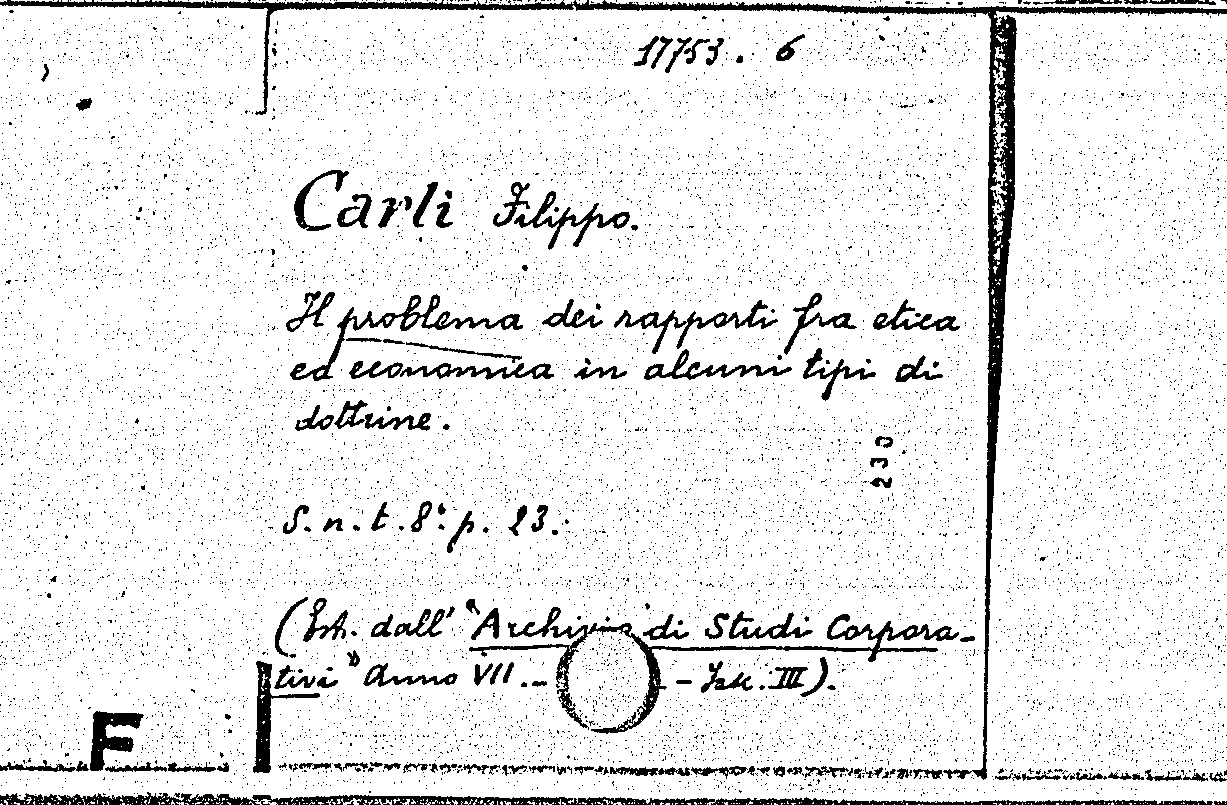 17753. 6
Carli Filippo.
Il problema dei rapporti fra etica
ed economica in alcuni tipi di
dottrine.
230
S. n. t. 8°. p. 23.
(Estr. dall' "Archivio di Studi Corpora-
tivi" Anno VII.- - Fasc. III).
F